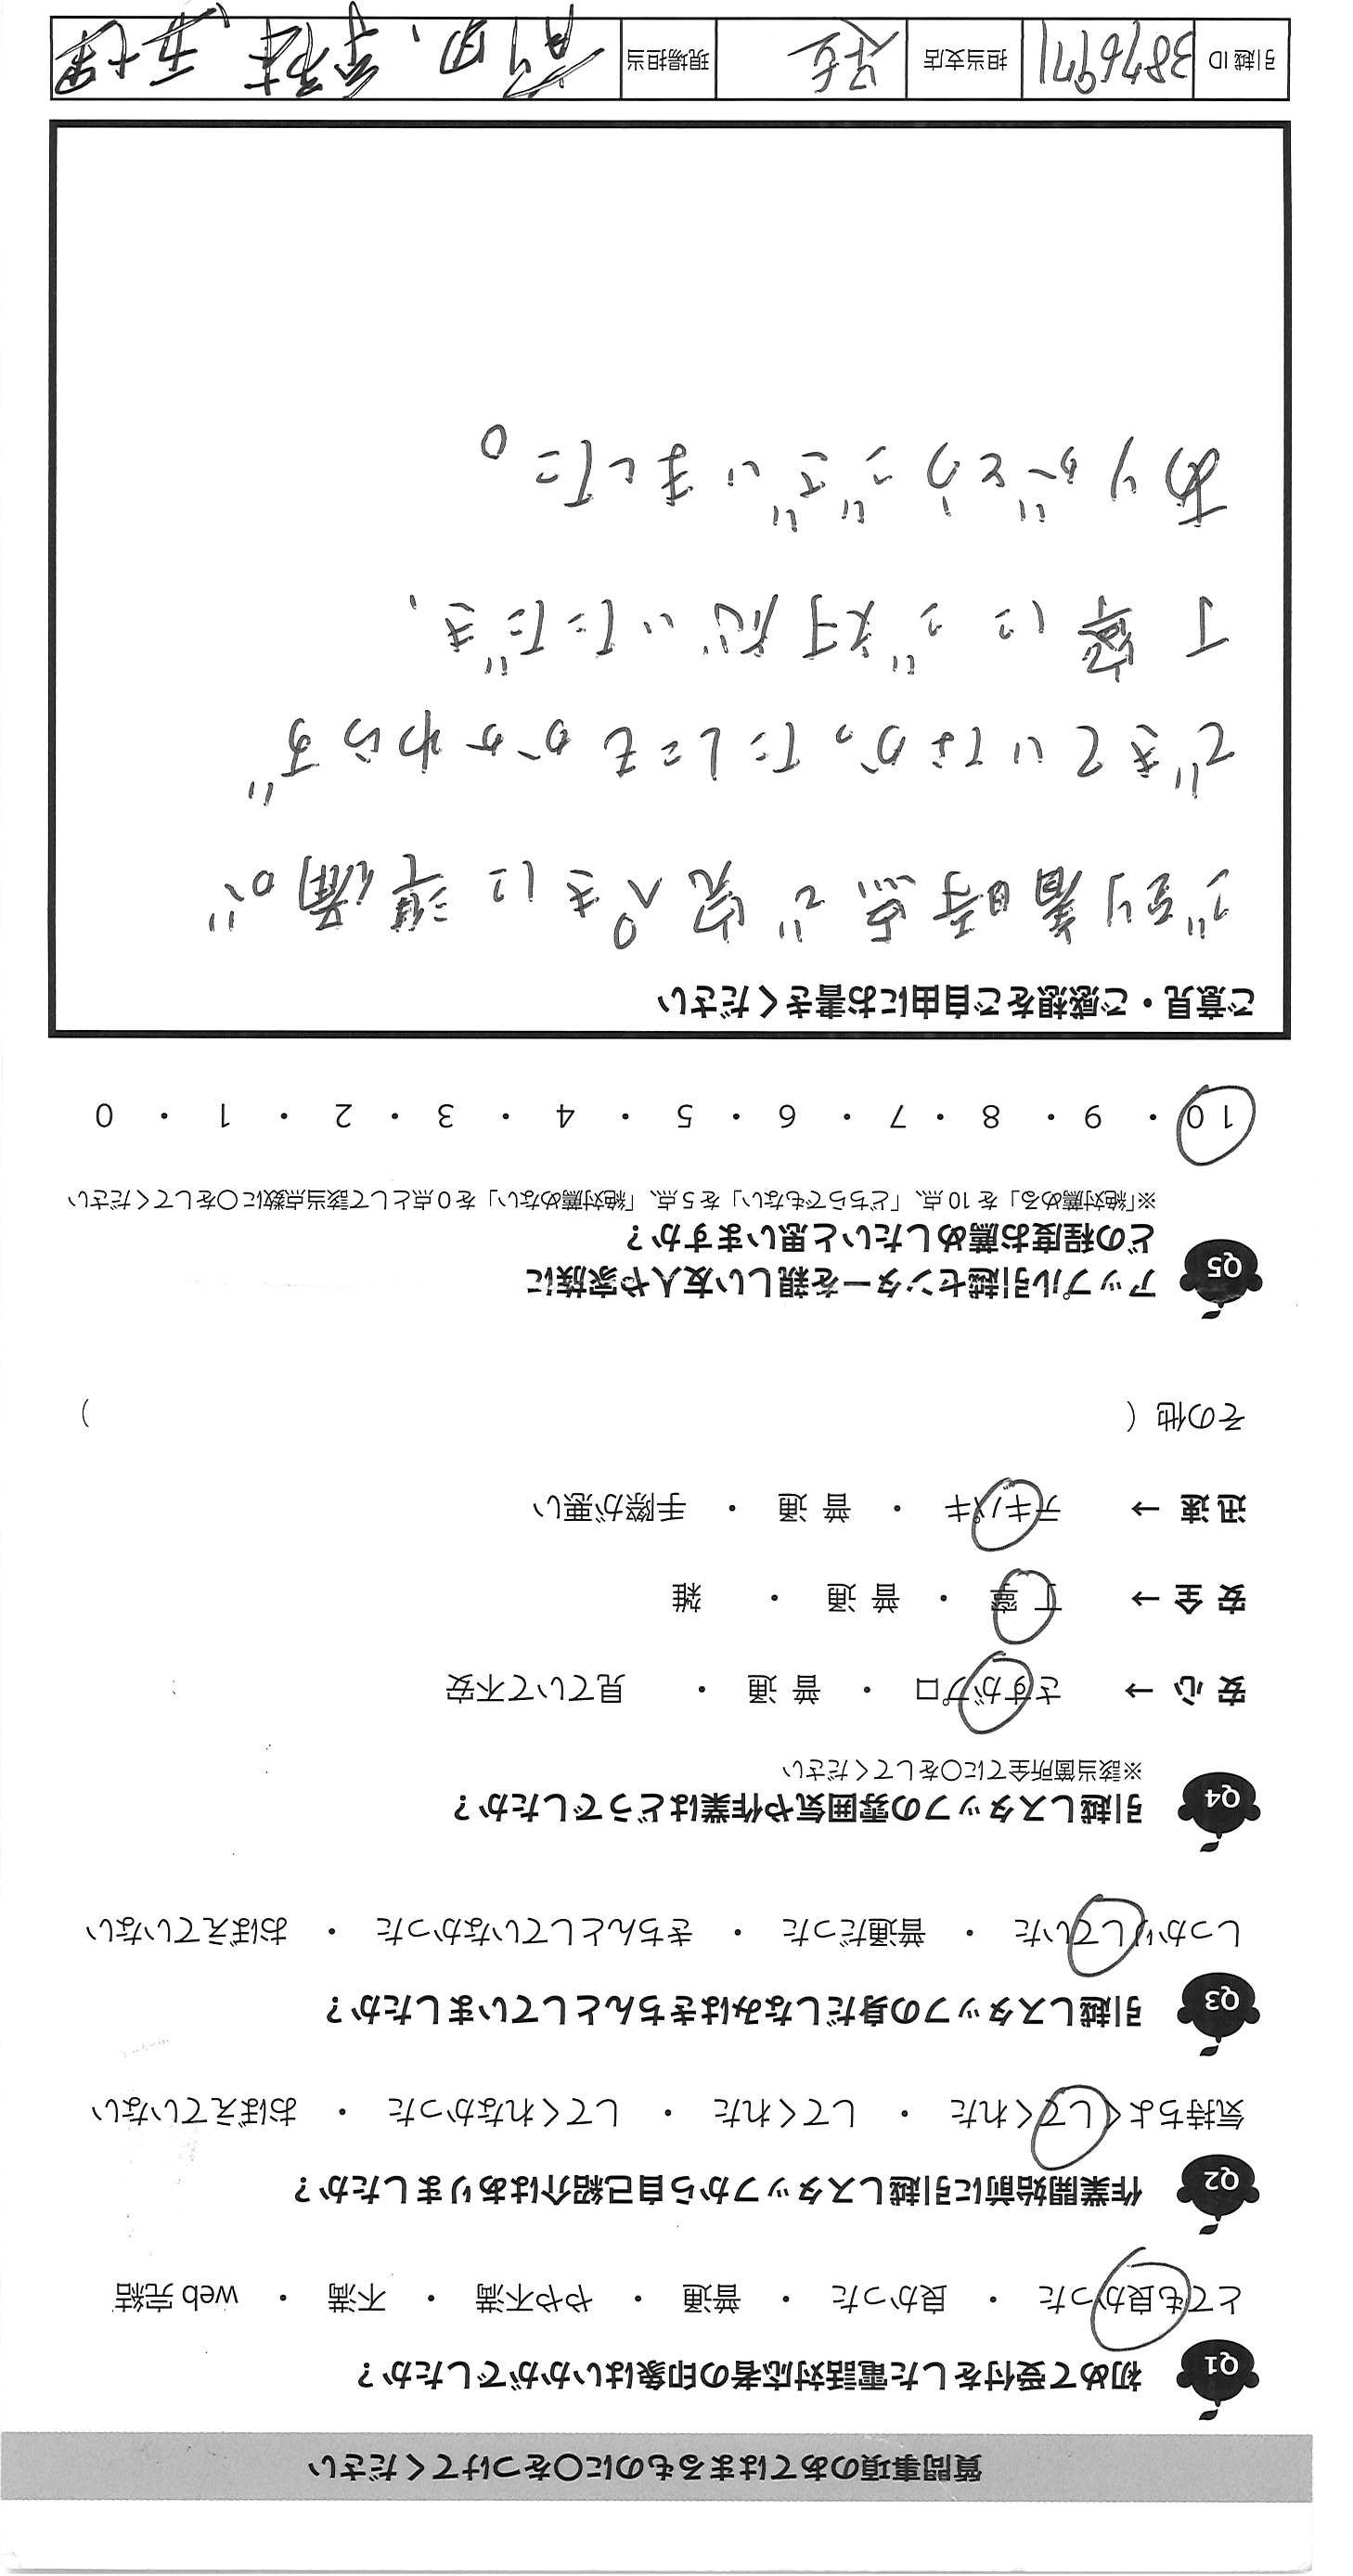 質問事項のあてはまるものに○をつけてください
Q1 初めて受付をした電話対応者の印象はいかがでしたか？
とても良かった ・ 良かった ・ 普通 ・ やや不満 ・ 不満 ・ web 完結
Q2 作業開始前に引越しスタッフから自己紹介はありましたか？
気持ちよくしてくれた ・ してくれた ・ してくれなかった ・ おぼえていない
Q3 引越しスタッフの身だしなみはきちんとしていましたか？
しっかりしていた ・ 普通だった ・ きちんとしていなかった ・ おぼえていない
Q4 引越しスタッフの雰囲気や作業はどうでしたか？
※該当箇所全てに○をしてください
安心 → さすがプロ ・ 普通 ・ 見ていて不安
安全 → 丁寧 ・ 普通 ・ 雑
迅速 → テキパキ ・ 普通 ・ 手際が悪い
その他（ ）
Q5 アップル引越センターを親しい友人や家族に
どの程度お薦めしたいと思いますか？
※「絶対薦める」を 10 点、「どちらでもない」を 5 点、「絶対薦めない」を 0 点として該当点数に○をしてください
10 ・ 9 ・ 8 ・ 7 ・ 6 ・ 5 ・ 4 ・ 3 ・ 2 ・ 1 ・ 0
ご意見・ご感想をご自由にお書きください
ご到着時点で完ぺきに準備が
できていなかったにもかかわらず
丁寧にご対応いただき、
ありがとうございました。
引越 ID 3876971 担当支店 現場担当